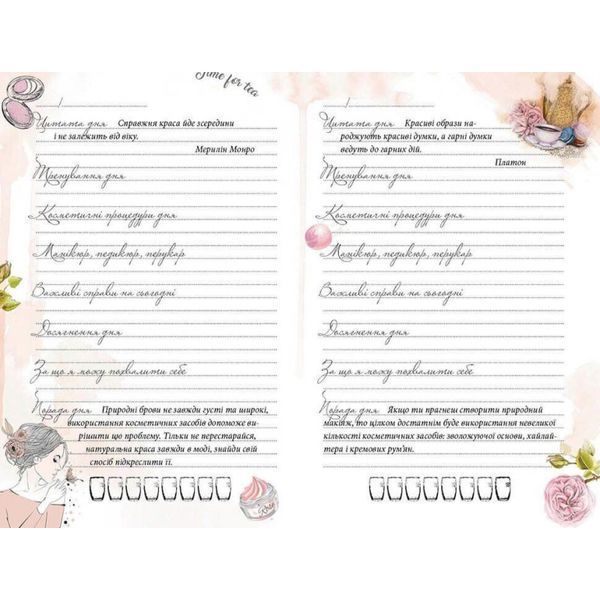 Time for tea
Цитата дня Справжня краса йде зсередини
і не залежить від віку.
Мерилін Монро
Тренування дня
Косметичні процедури дня
Манікюр, педикюр, перукар
Важливі справи на сьогодні
Досягнення дня
За що я можу похвалити себе
Порада дня Природні брови не завжди густі та широкі,
використання косметичних засобів допоможе ви-
рішити цю проблему. Тільки не перестарайся,
натуральна краса завжди в моді, знайди свій
спосіб підкреслити її.
Цитата дня Красиві образи на-
роджують красиві думки, а гарні думки
ведуть до гарних дій.
Платон
Тренування дня
Косметичні процедури дня
Манікюр, педикюр, перукар
Важливі справи на сьогодні
Досягнення дня
За що я можу похвалити себе
Порада дня Якщо ти прагнеш створити природний
макіяж, то цілком достатнім буде використання невеликої
кількості косметичних засобів: зволожуючої основи, хайлай-
тера і кремових рум'ян.